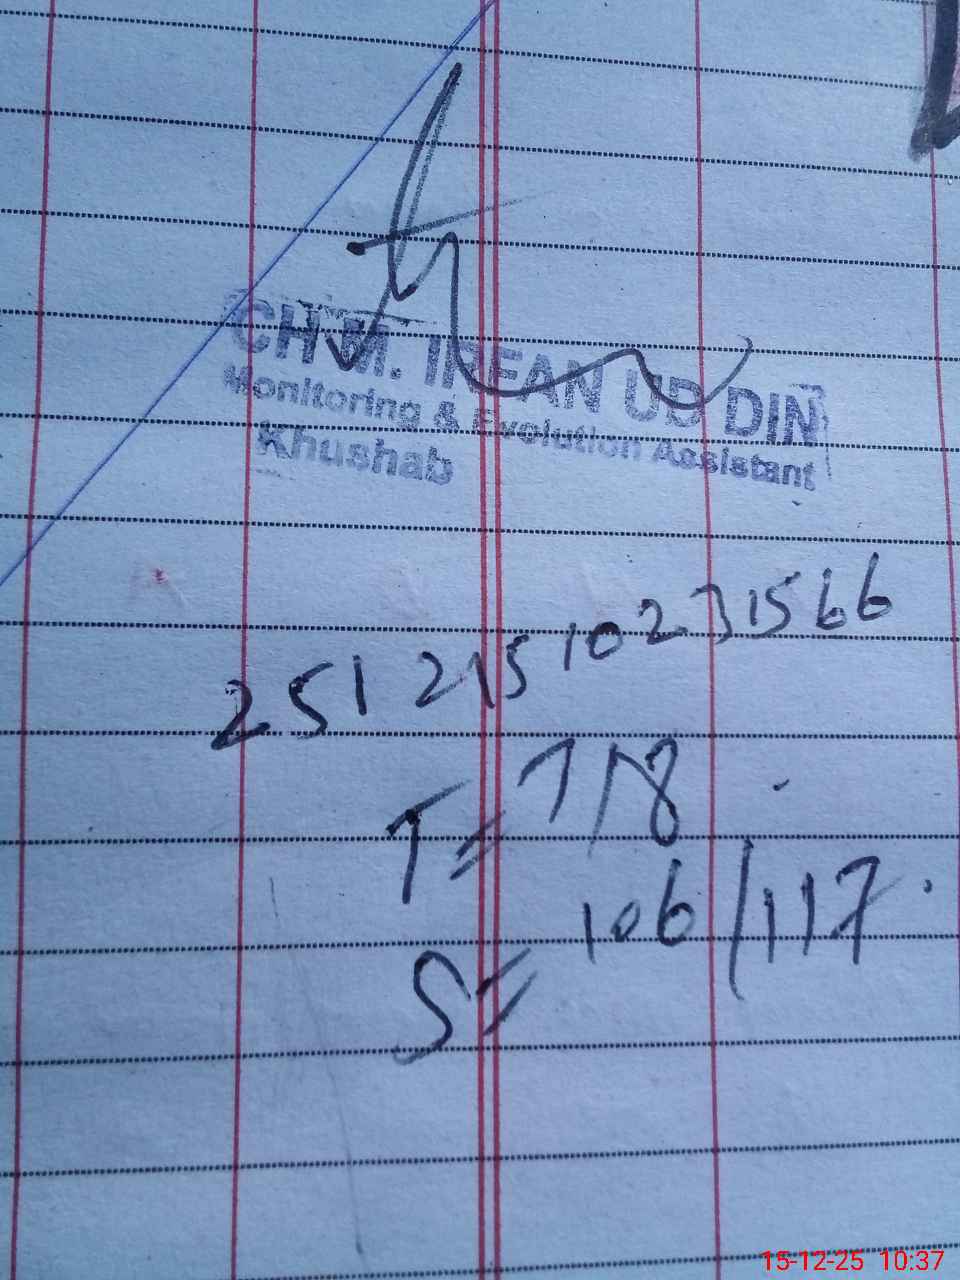 CH M. IRFAN UD DIN
Monitoring & Evolution Assistant
Khushab
251 215 10 23 15 66
T = 7/8
S = 106/117
15-12-25 10:37